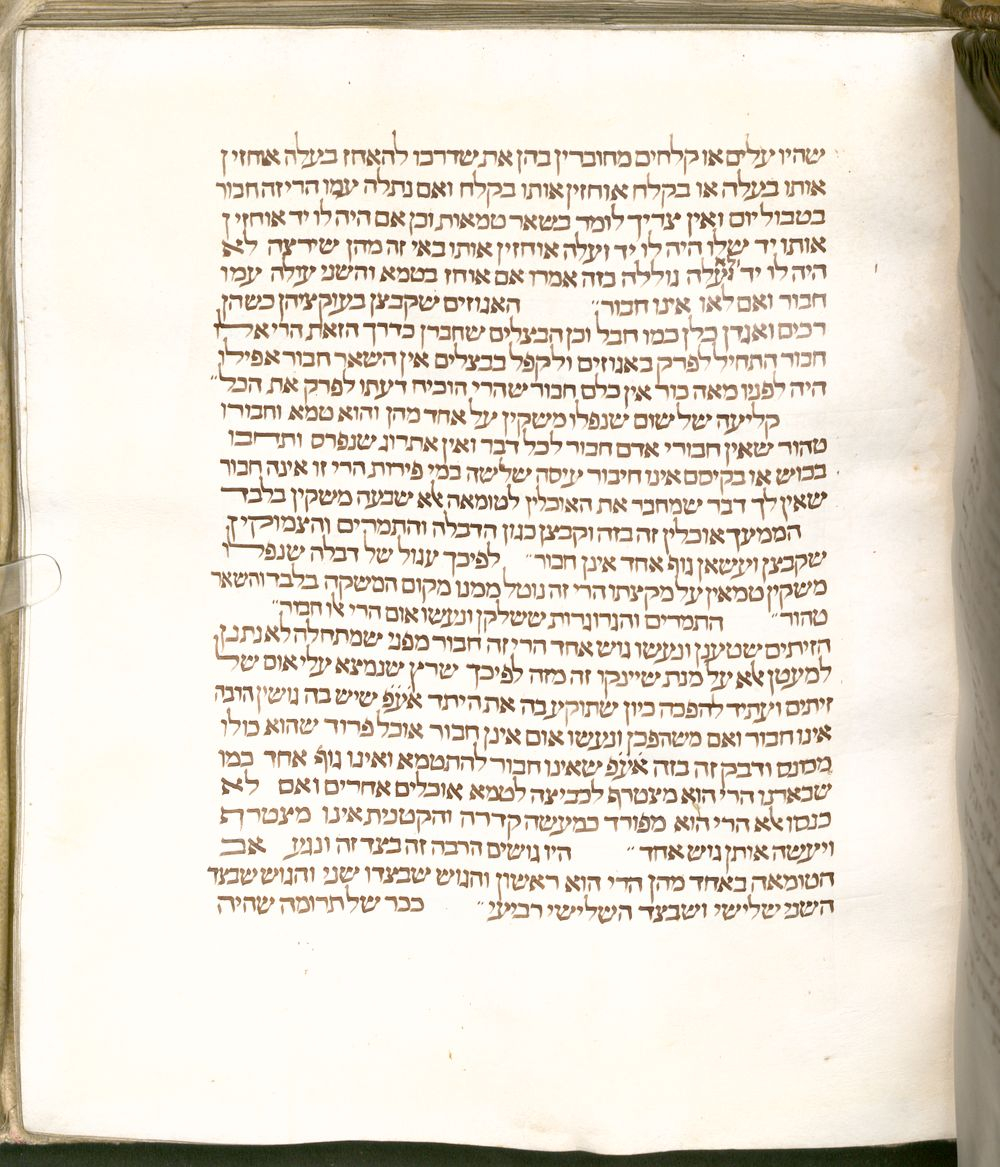 שהיו עלים או קלחים מחוברין בהן את שדרכו להאחז בעלה אוחזין
אותו בעלה או בקלח אוחזין אותו בקלח ואם נתלה עמו הרי זה חבור
בטבול יום ואין צריך לומר בשאר טמאות וכן אם היה לו יד אוחזין
אותו יד שלו היה לו יד ועלה אוחזין אותו באי זה מהן שירצה לא
היה לו יד ועלה נוללה בזה אמרו אם אוחז בטמא והשני עולה עמו
חבור ואם לאו אינו חבור״ האגוזים שקבצן בעוקציהן כשהן
רכים ואגדן כלן כמו חבל וכן הבצלים שחברן כדרך הזאת הרי אלו
חבור התחיל לפרק באגוזים ולקפל בבצלים אין השאר חבור אפילו
היה לפניו מאה כור אין כלם חבור שהרי הוכיח דעתו לפרק את הכל״
קליעה של שום שנפלו משקין על אחד מהן והוא טמא וחבורו
טהור שאין חבורי אדם חבור לכל דבר ואין אתרוג שנפרס ותחבו
בכוש או בקיסם אינו חיבור עיסה שלישה במי פירות הרי זו אינה חבור
שאין לך דבר שמחבר את האוכלין לטומאה אלא שבעה משקין בלבד
הממעך אוכלין זה בזה וקבצן כגון הדבלה והתמרים והצמוקין
שקבצן ועשאן גוף אחד אינן חבור״ לפיכך עגול של דבלה שנפלו
משקין טמאין על מקצתו הרי זה נוטל ממנו מקום המשקה בלבד והשאר
טהור״ התמרים והגרוגרות ששלקן ונעשו אום הרי אלו חבור״
הזיתים שטענן ונעשו גוש אחד הרי זה חבור מפני שמתחלה לא נתנן
למעטן אלא על מנת שיינקו זה מזה לפיכך שרץ שנמצא על אום של
זיתים ועתיד להפכה כיון שתוקע בה את היתד אעפ שיש בה גושין הרבה
אינו חבור ואם משהפכן ונעשו אום אינן חבור אוכל פרוד שהוא כולו
מכונס ודבק זה בזה אעפ שאינו חבור להתטמא ואינו גוף אחד כמו
שבארנו הרי הוא מצטרף לכביצה לטמא אוכלים אחרים ואם לא
כנסו אלא הרי הוא מפורד כמעשה קדרה והקטנית אינו מצטרף
ויעשה אותן גוש אחד״ היו גושים הרבה זה בצד זה ונגע אב
הטומאה באחד מהן הרי הוא ראשון והגוש שבצדו שני והגוש שבצד
השני שלישי ושבצד השלישי רביעי״ ככר של תרומה שהיה